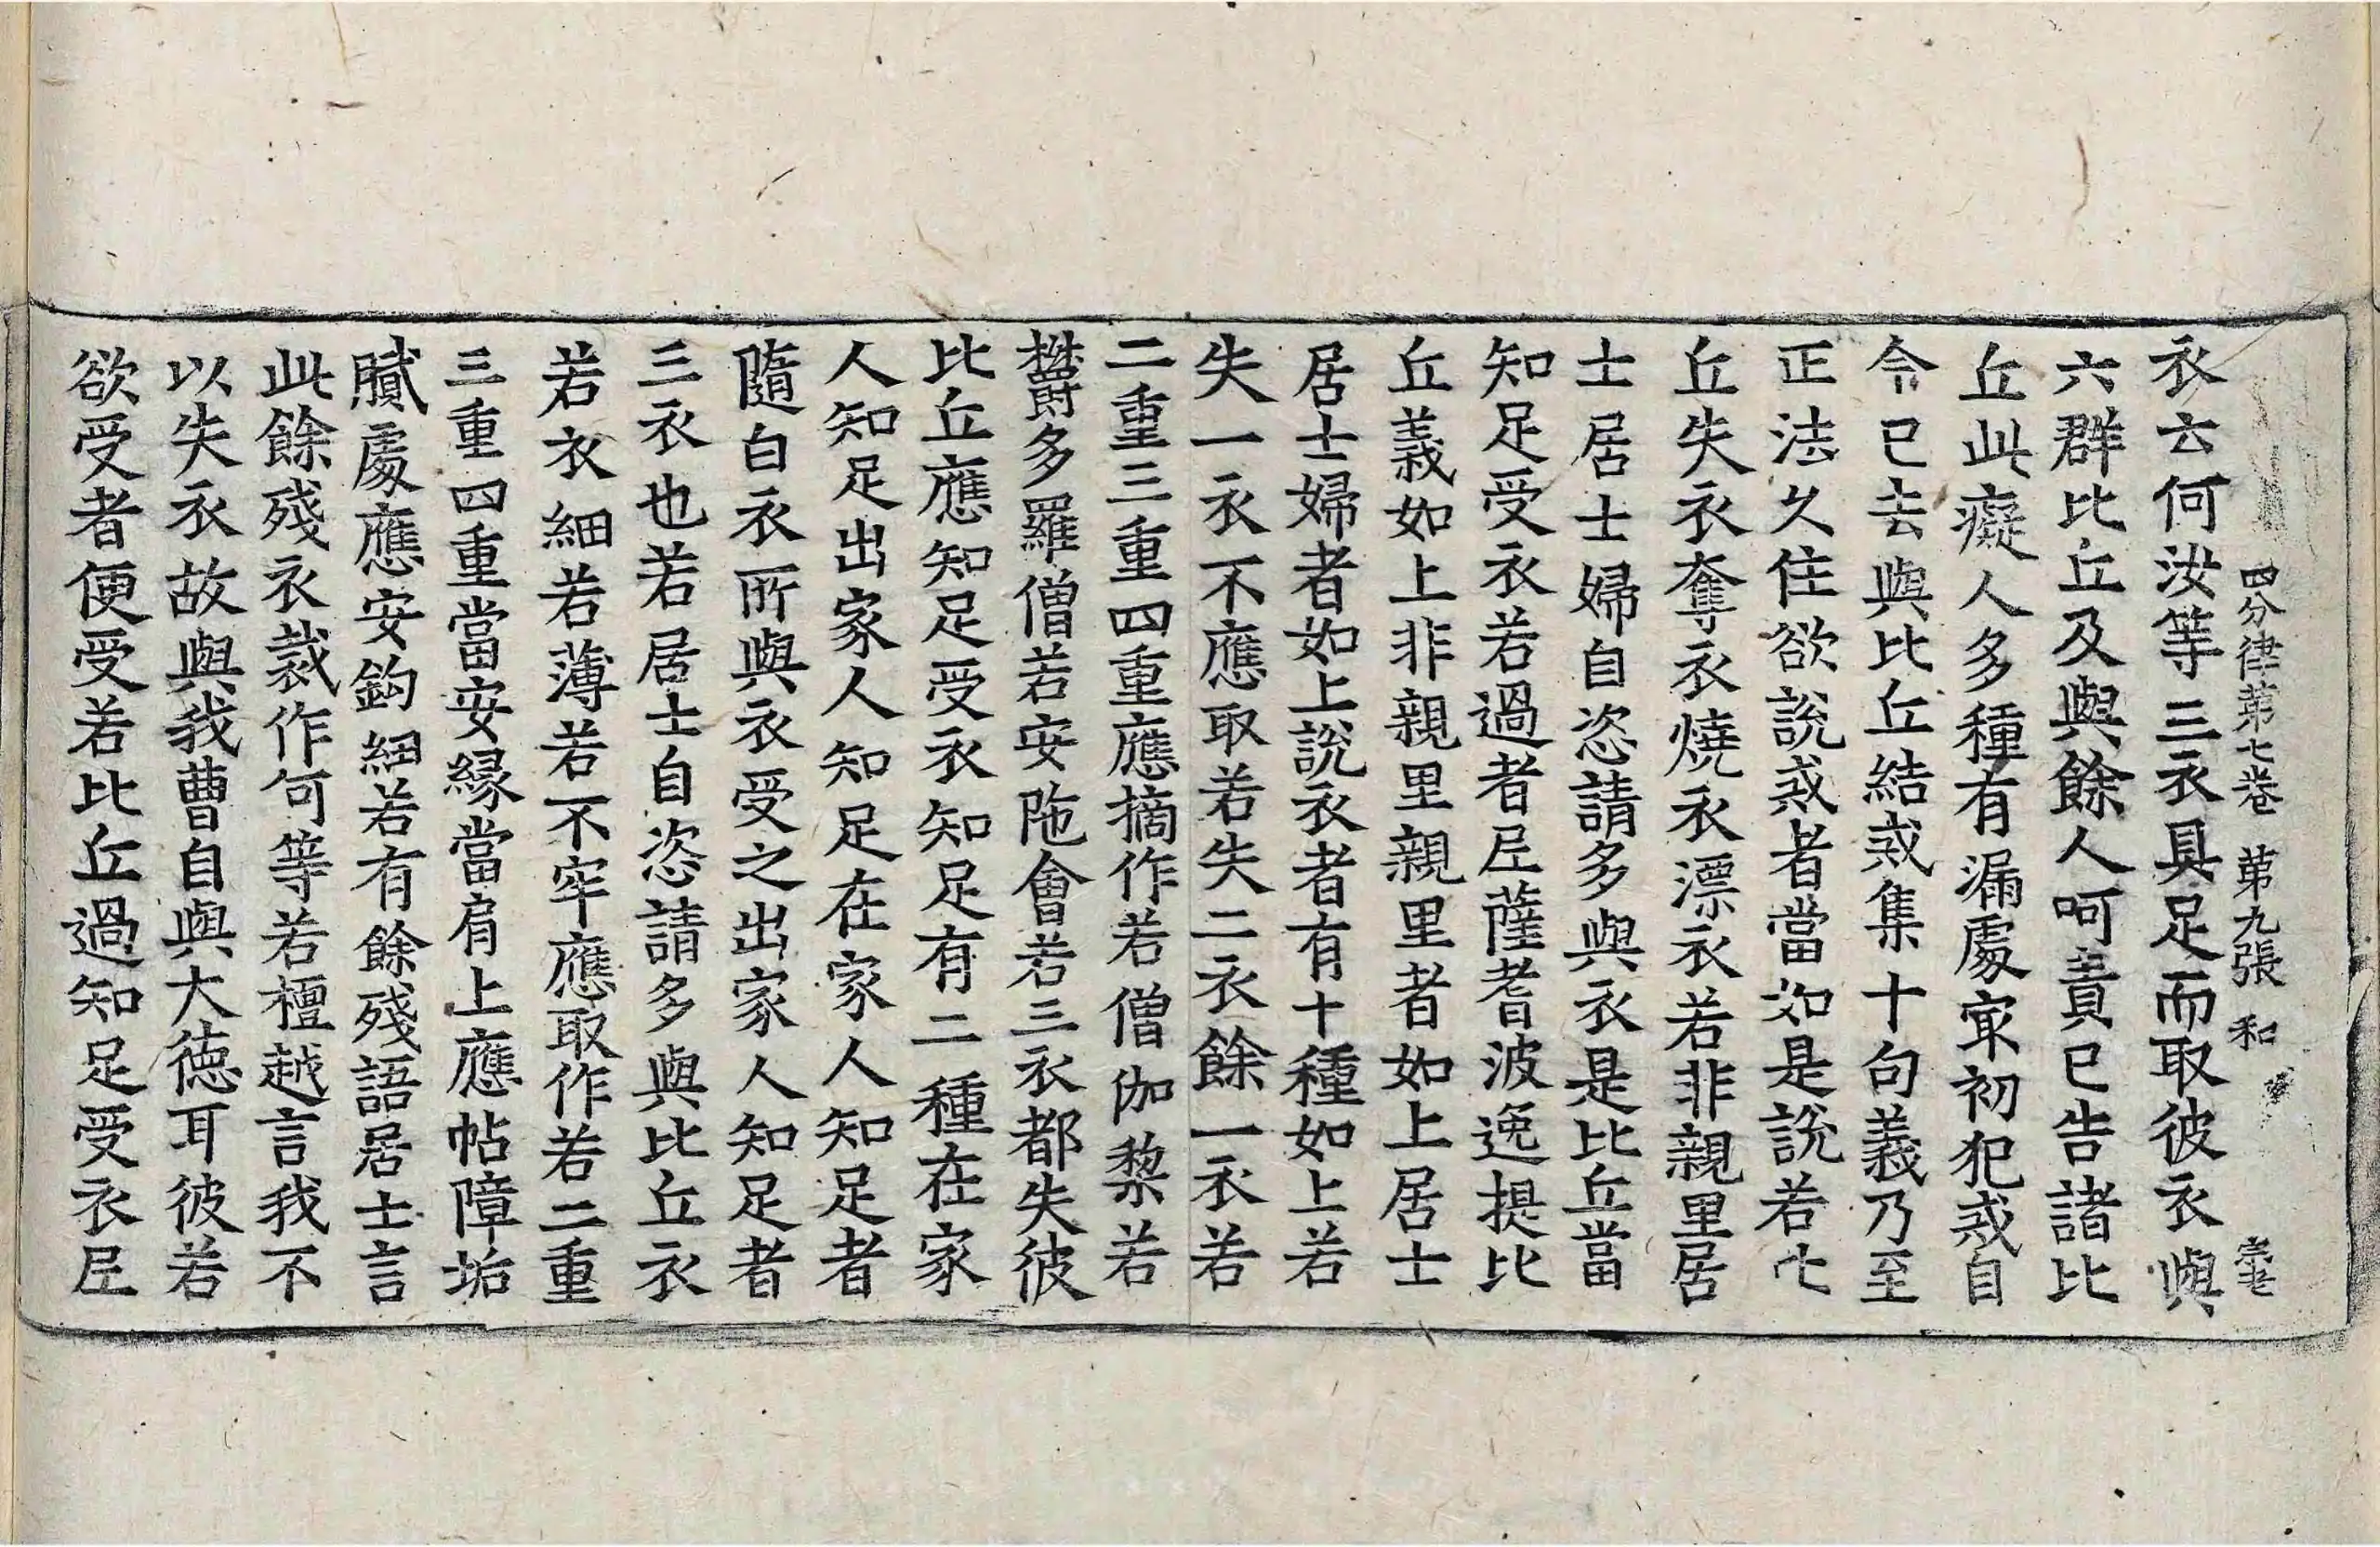 四分律第七卷 第九張 和
衣云何汝等三衣具足而取彼衣與
六群比丘及與餘人呵責已告諸比
丘此癡人多種有漏處㝡初犯戒自
今已去與比丘結戒集十句義乃至
正法久住欲說戒者當如是說若比
丘失衣奪衣燒衣漂衣若非親里居
士居士婦自恣請多與衣是比丘當
知足受衣若過者尼薩耆波逸提比
丘義如上非親里親里者如上居士
居士婦者如上說衣者有十種如上若
失一衣不應取若失二衣餘一衣若
二重三重四重應摘作若僧伽梨若
欝多羅僧若安陁會若三衣都失彼
比丘應知足受衣知足有二種在家
人知足出家人知足在家人知足者
隨白衣所與衣受之出家人知足者
三衣也若居士自恣請多與比丘衣
若衣細若薄若不牢應取作若二重
三重四重當安緣當肩上應帖障垢
膩處應安鉤紐若有餘殘語居士言
此餘殘衣裁作何等若檀越言我不
以失衣故與我曹自與大德耳彼若
欲受者便受若比丘過知足受衣尼